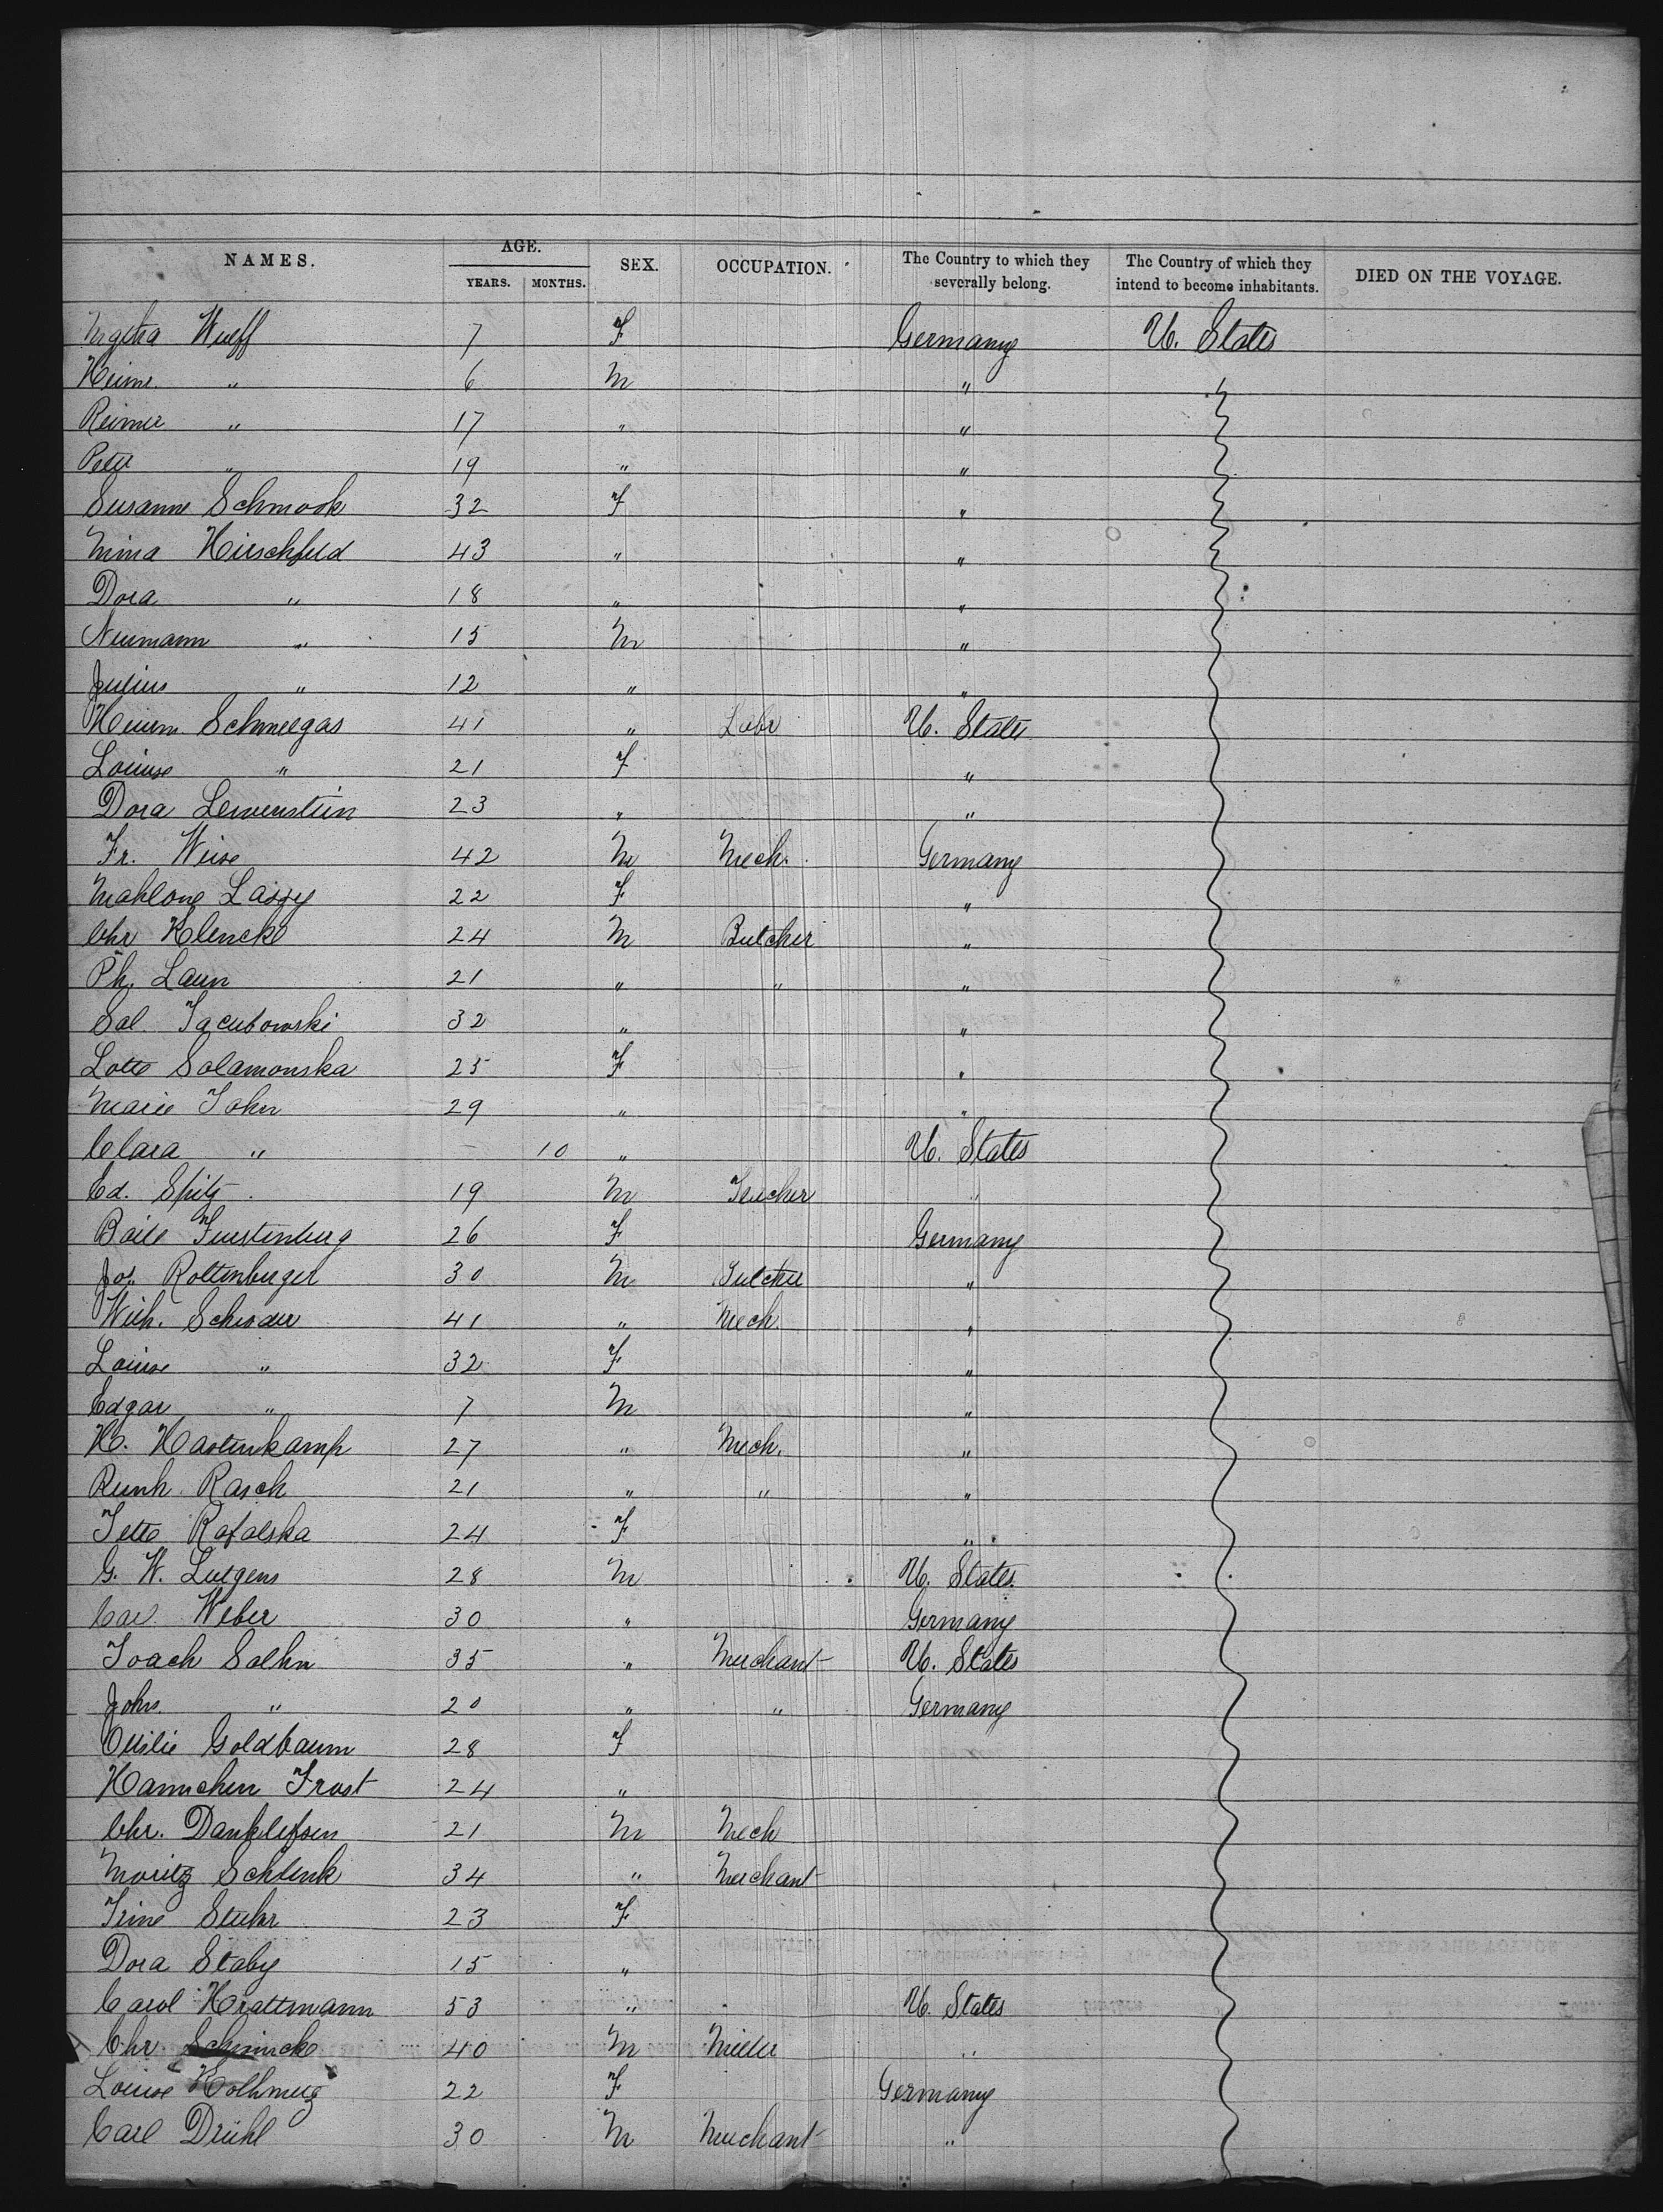 NAMES. AGE. YEARS. MONTHS. SEX. OCCUPATION. The Country to which they severally belong. The Country of which they intend to become inhabitants. DIED ON THE VOYAGE.
Wulff 7 F Germany U. States
" 6 M "
Reimer " 17 " "
Peter " 19 " "
Susanne Schmook 32 F "
Mina Hirschfeld 43 " "
Dora " 18 " "
Neumann " 15 M "
Julius " 12 " "
Schmeegas 41 " Labr U. States
Louise " 21 F "
Dora Lewenstein 23 " "
Fr. Weise 42 M Mech. Germany
22 F "
Chr Klencke 24 M Butcher "
Ph. Laun 21 " " "
Sal. Jacubowski 32 " "
Lotte Salamonska 25 F "
Marie John 29 " "
Clara " — 10 " U. States
Ed. Spitz 19 M Teacher "
Furstenberg 26 F Germany
Jos. Rottenberger 30 M "
Wilh. Schroder 41 " Mech. "
Louise " 32 F "
Edgar " 7 M "
H. Hastenkamp 27 " Mech. "
Rasch 21 " " "
Jette Rafalska 24 F "
G. W. Lutgens 28 M U. States
Carl Weber 30 " Germany
Joach 35 " Merchant U. States
Johs. " 20 " " Germany
Goldbaum 28 F
Hannchen Frost 24 "
Chr. Danklefsen 21 M Mech
Moritz Schlenk 34 " Merchant
Trine Stuhr 23 F
Dora Staby 15 "
Carol Krattmann 53 " U. States
Chr. 40 M Miller "
Louise 22 F Germany
Carl Drühl 30 M Merchant "